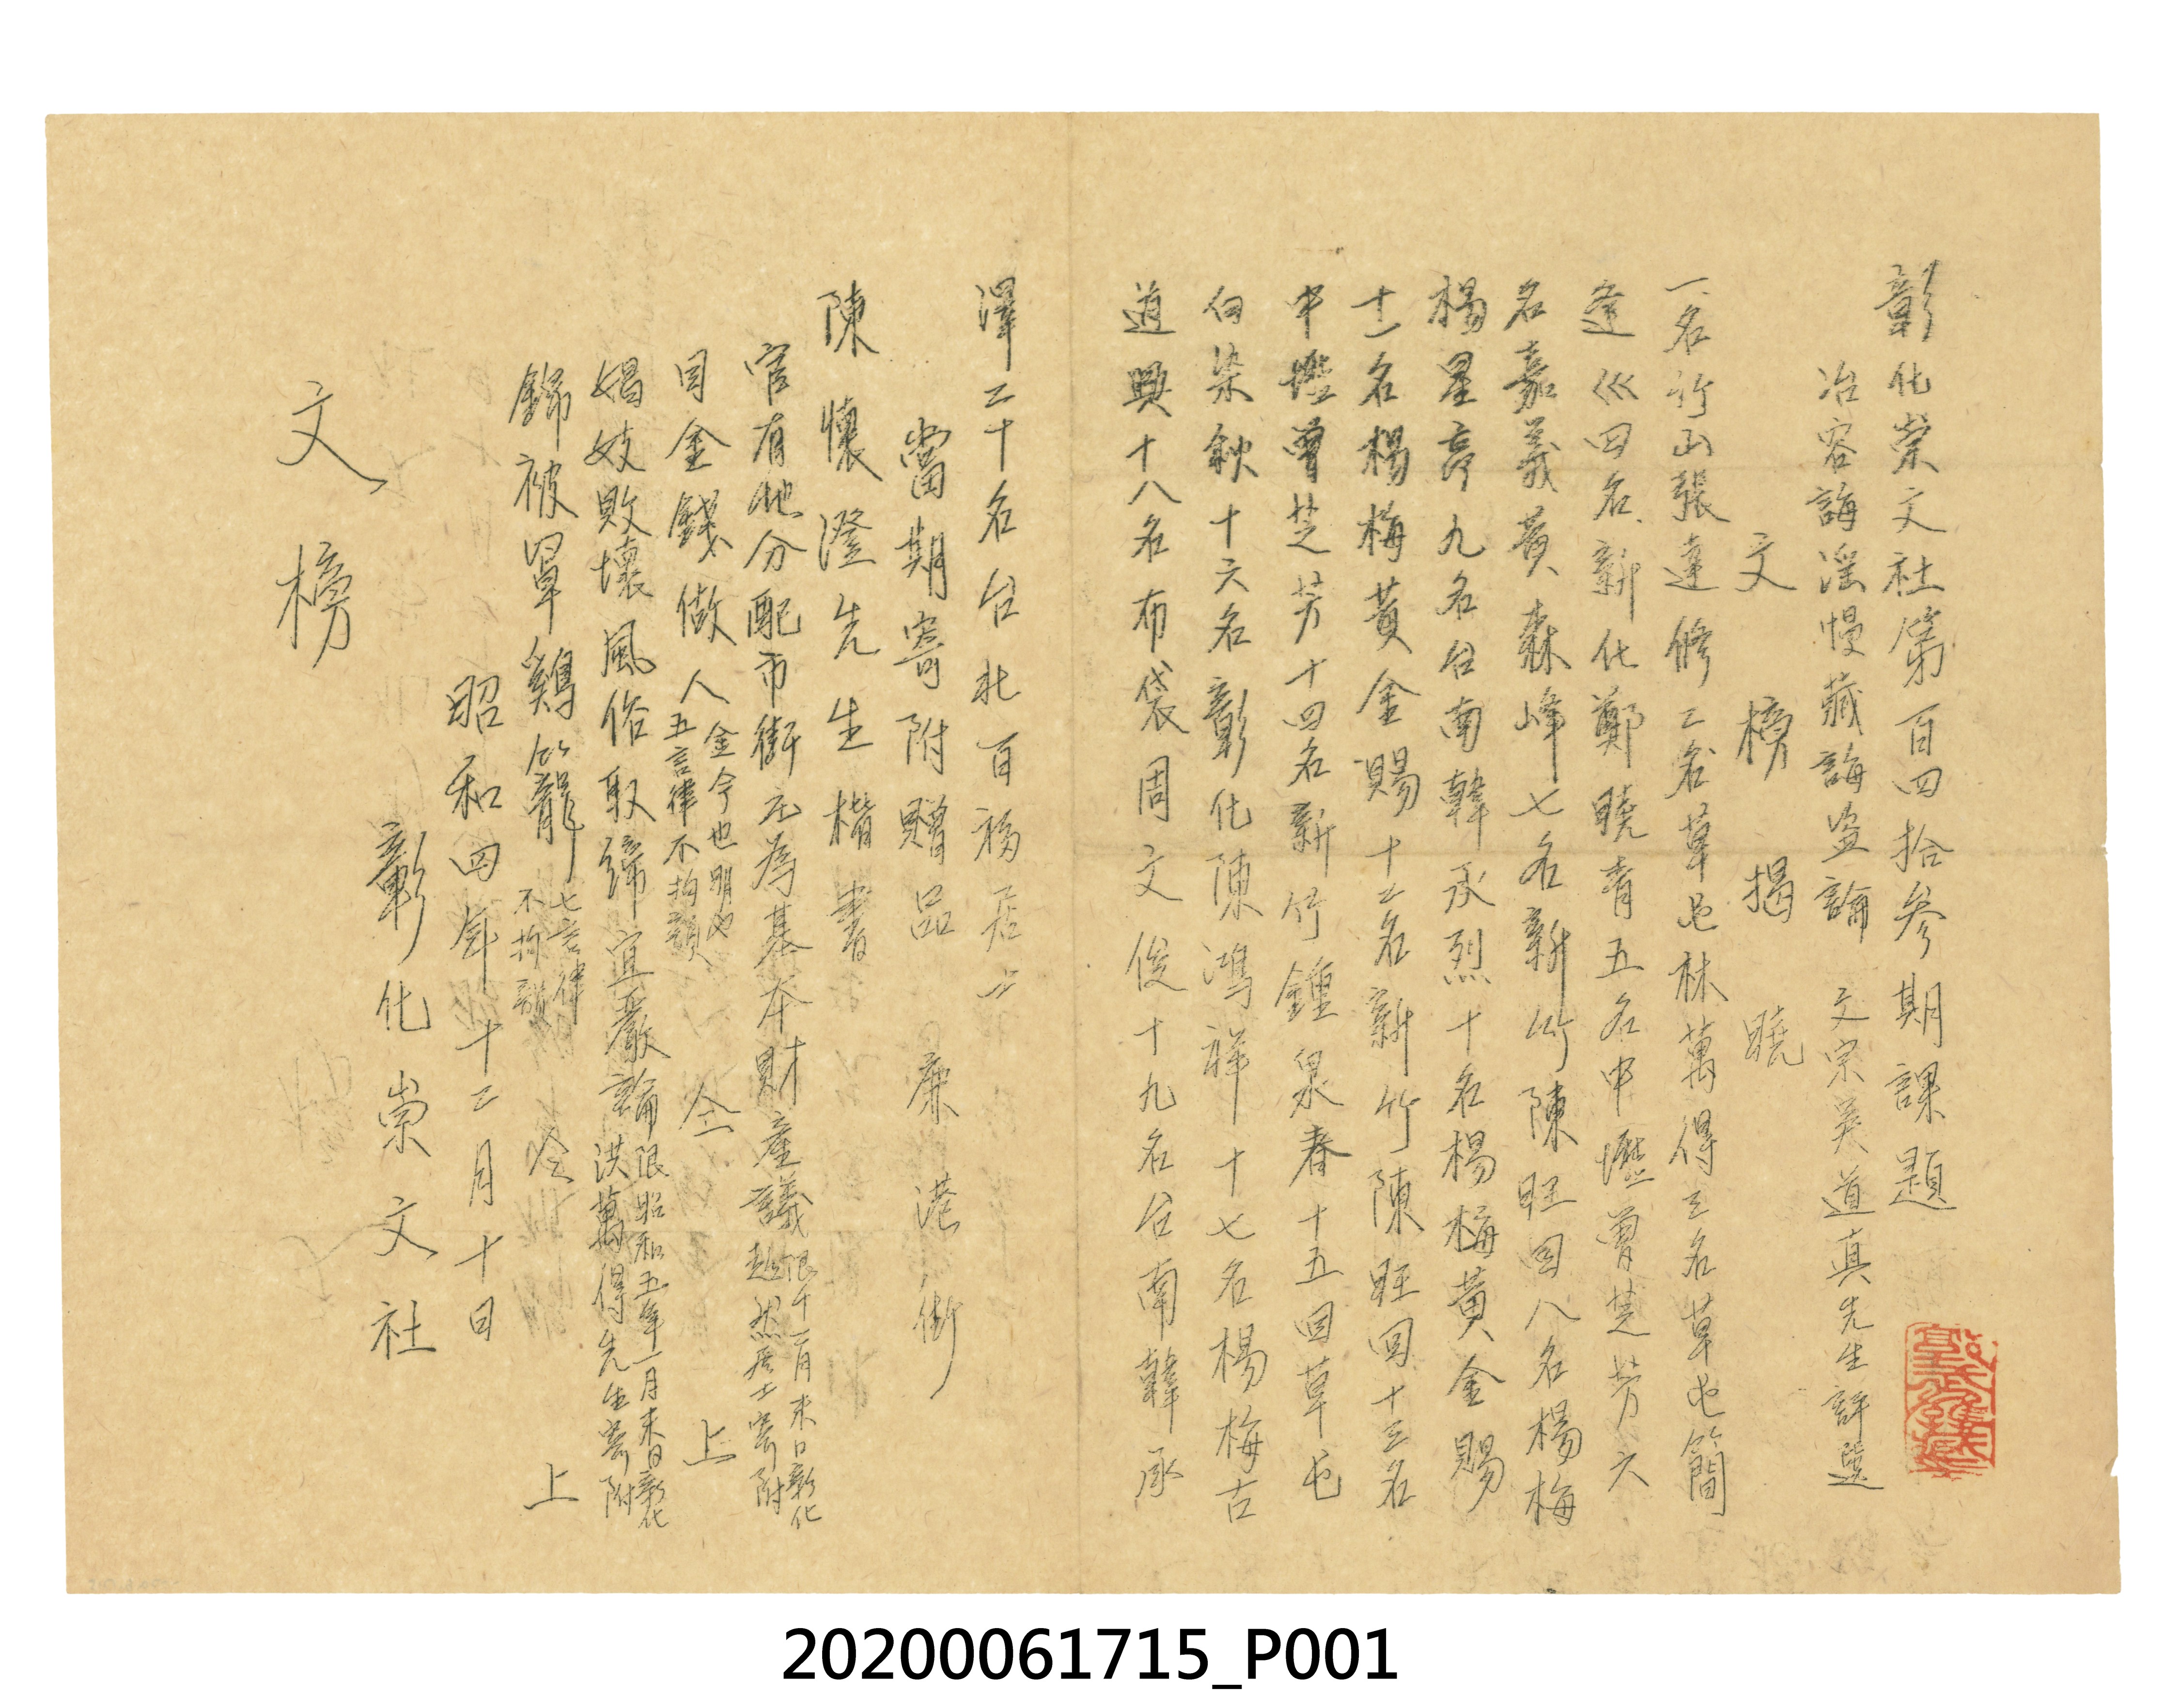 彰化崇文社第百四拾參期課題
冶容誨淫慢藏誨盜論 文宗吳道真先生評選
文榜揭曉
一名竹山張達修二名草屯林萬得三名草屯簡
達巛四名新化鄭曉青五名中壢曾芝芳六
名嘉義黃森峰七名新竹陳旺回八名楊梅
楊星亭九名台南韓承烈十名楊梅黃金賜
十一名楊梅黃金賜十二名新竹陳旺回十三名
中壢曾芝芳十四名新竹鍾泉春十五回草屯
白染秋十六名彰化陳鴻祥十七名楊梅古
道興十八名布袋周文俊十九名台南韓承
澤二十名台北百福居士
當期寄附贈品 鹿港街
陳懷澄先生楷書
官有地分配市街庄為基本財產議 限十二月末日彰化
超然居士寄附
目金錢做人 金今也明也
五言律不拘韻 仝 上
娼妓敗壞風俗取締宜嚴論 限昭和五年一月末日彰化
洪萬得先生寄附
錦被罩鷄籠 七言律
不拘韻 仝 上
昭和四年十二月十日
彰化崇文社
文榜
20200061715_P001